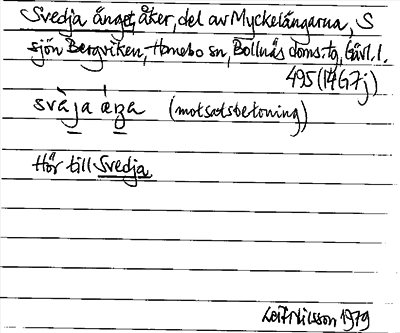 Svedja änget, åker, del av Myckelängarna, S
sjön Bergviken, Hanebo sn, Bollnäs doms.tg, Gävl. l.
495 (14G7j)
svàja ǽŋa (motsatsbetoning)
Hör till Svedja
Leif Nilsson 1979